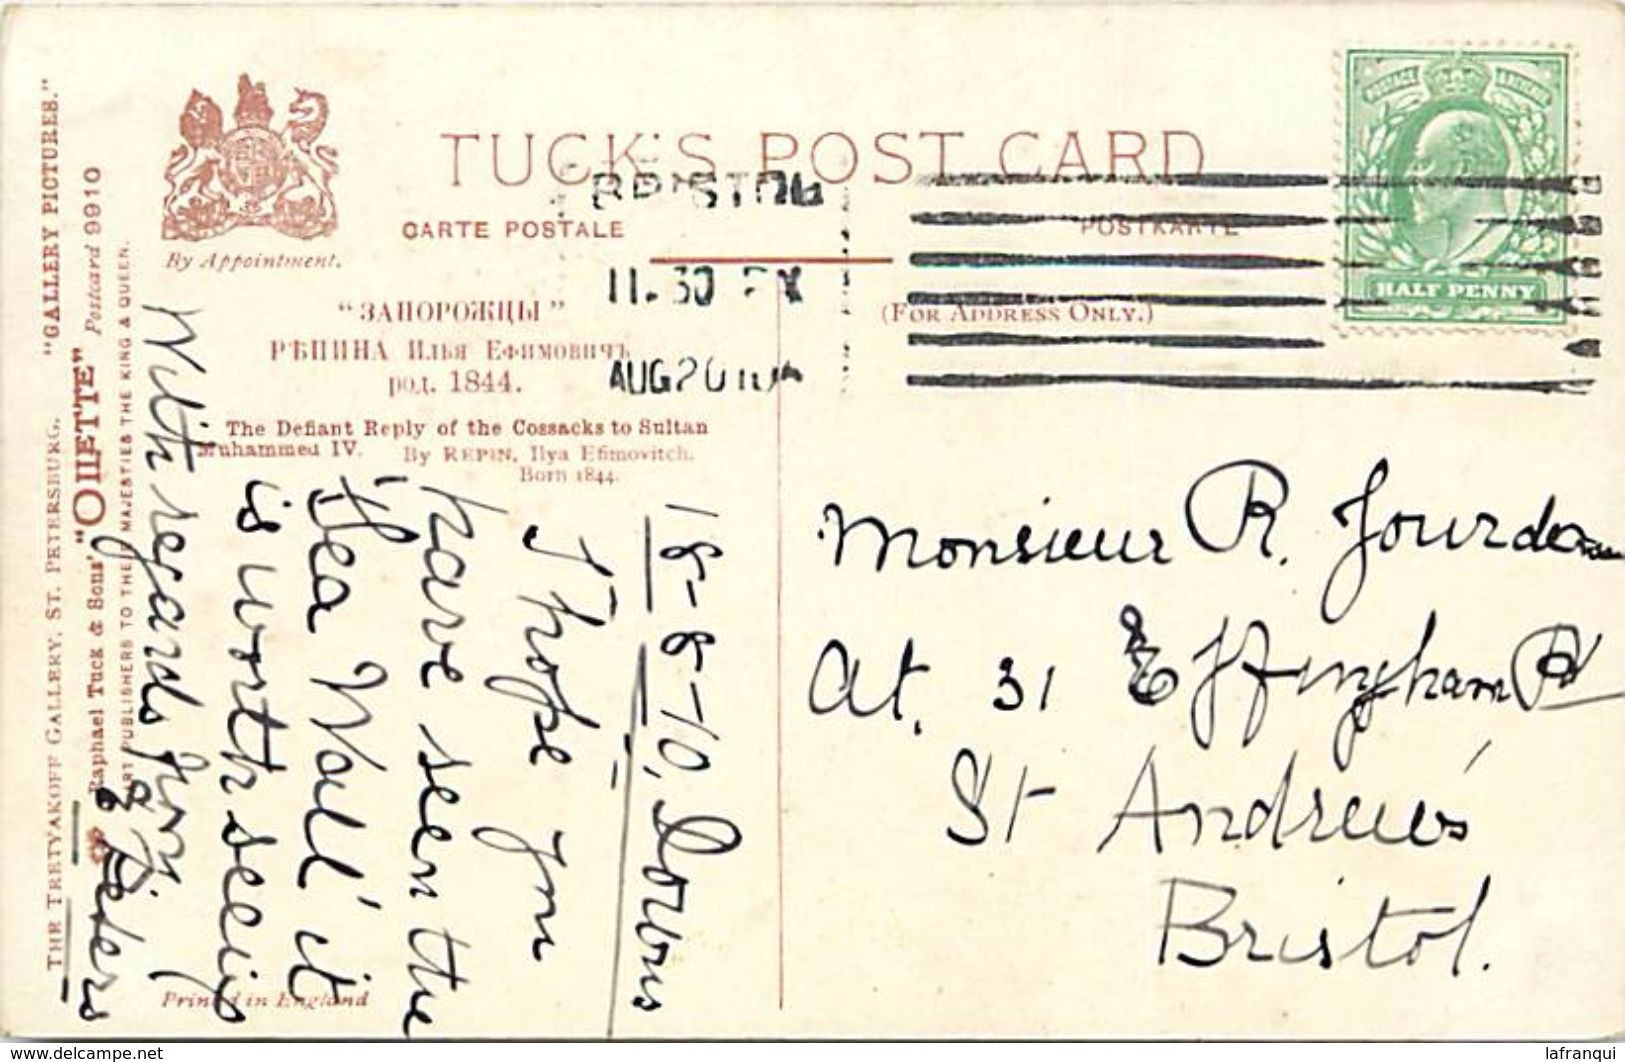 TUCK'S POST CARD
CARTE POSTALE
POSTKARTE
By Appointment.
(FOR ADDRESS ONLY.)
"ЗАПОРОЖЦЫ"
РѢПИНА Илья Ефимовичъ
род. 1844.
The Defiant Reply of the Cossacks to Sultan
Muhammed IV. By REPIN, Ilya Efimovitch.
Born 1844.
BRISTOL
11.30
AUG 20 10
POSTAGE & REVENUE
HALF PENNY
THR TRETYAKOFF GALLERY, ST. PETERSBURG. "GALLERY PICTURES."
Raphael Tuck & Sons' "OILETTE" Postcard 9910
ART PUBLISHERS TO THEIR MAJESTIES THE KING & QUEEN.
Printed in England
18-8-10,
I hope you
have seen the
'Sea Wall' it
is worth seeing
With regards from
Peters
Monsieur R. Jourdan
At. 31 Effingham Rd
St Andrew's
Bristol.
www.delcampe.net
lafranqui